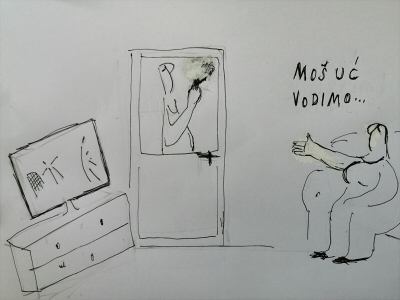 MOŠ UĆ
VODIMO...